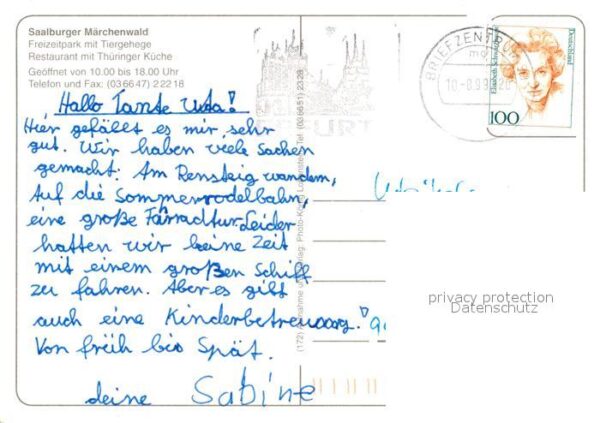 Saalburger Märchenwald
Freizeitpark mit Tiergehege
Restaurant mit Thüringer Küche
Geöffnet von 10.00 bis 18.00 Uhr
Telefon und Fax: (036647) 22218
Hallo Tante Uta!
Hier gefällt es mir sehr
gut. Wir haben viele Sachen
gemacht: Am Rensteig wandern,
Auf die Sommerrodelbahn,
eine große Farradtur. Leider
hatten wir keine Zeit
mit einem großen Schiff
zu fahren. Aber es gibt
auch eine Kinderbetreuung.
Von früh bis Spät.
deine Sabine
BRIEFZENTRUM
ERFURT
Deutschland
100
privacy protection
Datenschutz